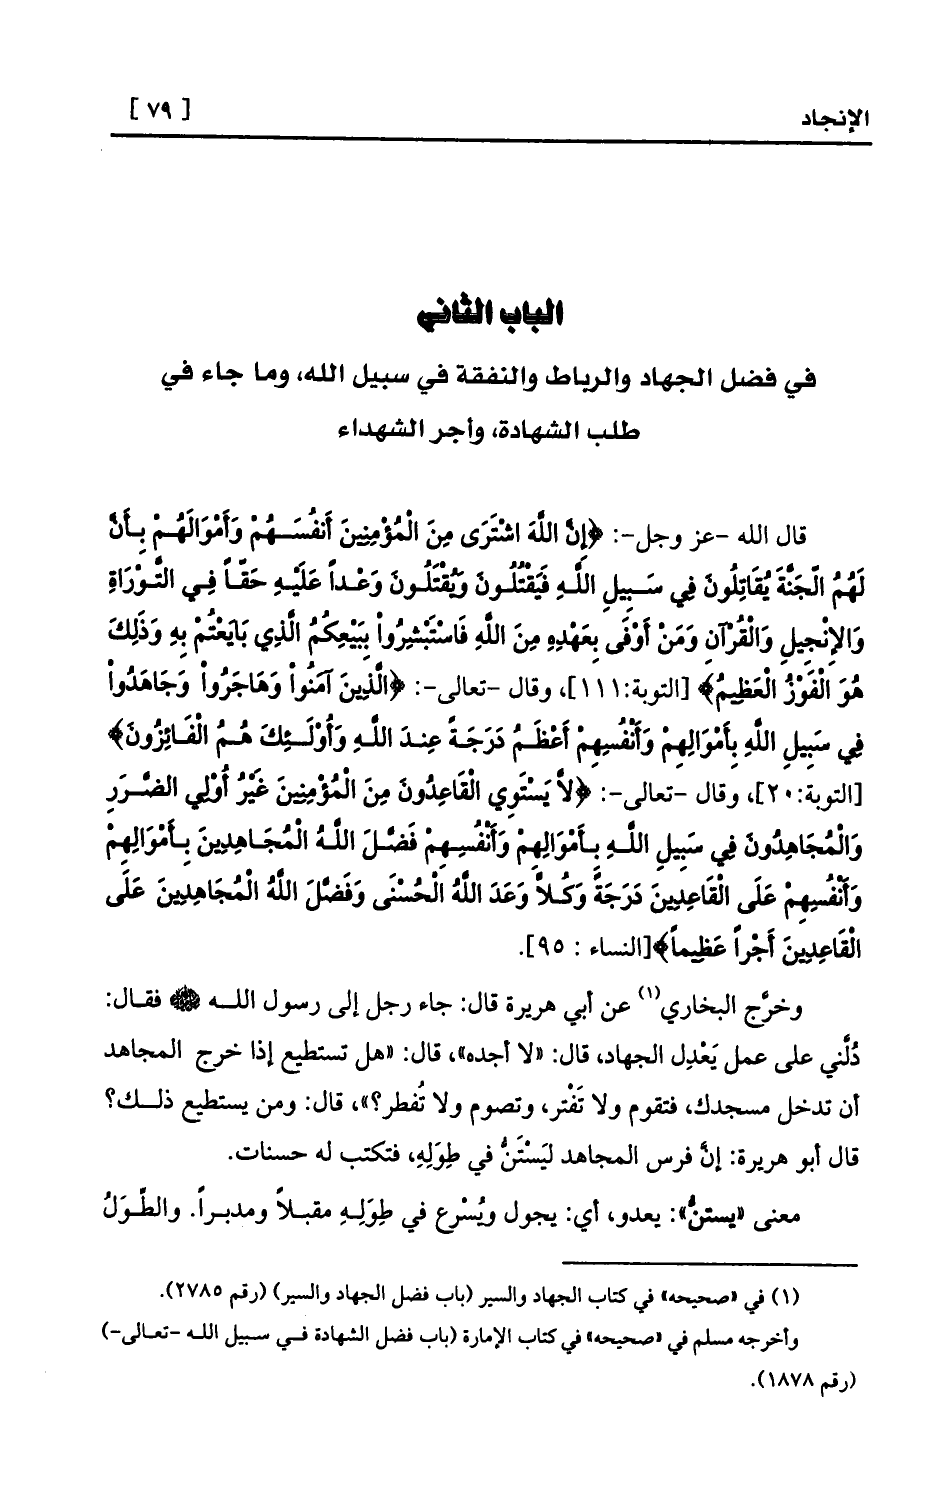 الإنجاد [ ٧٩ ]
الباب الثاني
في فضل الجهاد والرباط والنفقة في سبيل الله، وما جاء في
طلب الشهادة، وأجر الشهداء
قال الله -عز وجل-: ﴿إِنَّ اللَّهَ اشْتَرَى مِنَ الْمُؤْمِنِينَ أَنفُسَهُمْ وَأَمْوَالَهُمْ بِأَنَّ
لَهُمُ الْجَنَّةَ يُقَاتِلُونَ فِي سَبِيلِ اللَّهِ فَيَقْتُلُونَ وَيُقْتَلُونَ وَعْداً عَلَيْهِ حَقّاً فِي التَّوْرَاةِ
وَالإِنْجِيلِ وَالْقُرْآنِ وَمَنْ أَوْفَى بِعَهْدِهِ مِنَ اللَّهِ فَاسْتَبْشِرُواْ بِبَيْعِكُمُ الَّذِي بَايَعْتُمْ بِهِ وَذَلِكَ
هُوَ الْفَوْزُ الْعَظِيمُ﴾ [التوبة:١١١]، وقال -تعالى-: ﴿الَّذِينَ آمَنُواْ وَهَاجَرُواْ وَجَاهَدُواْ
فِي سَبِيلِ اللَّهِ بِأَمْوَالِهِمْ وَأَنْفُسِهِمْ أَعْظَمُ دَرَجَةً عِندَ اللَّهِ وَأُوْلَئِكَ هُمُ الْفَائِزُونَ﴾
[التوبة:٢٠]، وقال -تعالى-: ﴿لاَّ يَسْتَوِي الْقَاعِدُونَ مِنَ الْمُؤْمِنِينَ غَيْرُ أُوْلِي الضَّرَرِ
وَالْمُجَاهِدُونَ فِي سَبِيلِ اللَّهِ بِأَمْوَالِهِمْ وَأَنْفُسِهِمْ فَضَّلَ اللَّهُ الْمُجَاهِدِينَ بِأَمْوَالِهِمْ
وَأَنْفُسِهِمْ عَلَى الْقَاعِدِينَ دَرَجَةً وَكُلاًّ وَعَدَ اللَّهُ الْحُسْنَى وَفَضَّلَ اللَّهُ الْمُجَاهِدِينَ عَلَى
الْقَاعِدِينَ أَجْراً عَظِيماً﴾[النساء : ٩٥].
وخرَّج البخاري(١) عن أبي هريرة قال: جاء رجل إلى رسول الله ﷺ فقال:
دُلَّني على عمل يَعْدِل الجهاد، قال: «لا أجده»، قال: «هل تستطيع إذا خرج المجاهد
أن تدخل مسجدك، فتقوم ولا تَفْتر، وتصوم ولا تُفطر؟»، قال: ومن يستطيع ذلك؟
قال أبو هريرة: إنَّ فرس المجاهد ليَسْتَنُّ في طِوَلِهِ، فتكتب له حسنات.
معنى «يستنُّ»: يعدو، أي: يجول ويُسْرع في طِوَلِهِ مقبلاً ومدبراً. والطِّوَلُ
(١) في «صحيحه» في كتاب الجهاد والسير (باب فضل الجهاد والسير) (رقم ٢٧٨٥).
وأخرجه مسلم في «صحيحه» في كتاب الإمارة (باب فضل الشهادة في سبيل الله -تعالى-)
(رقم ١٨٧٨).